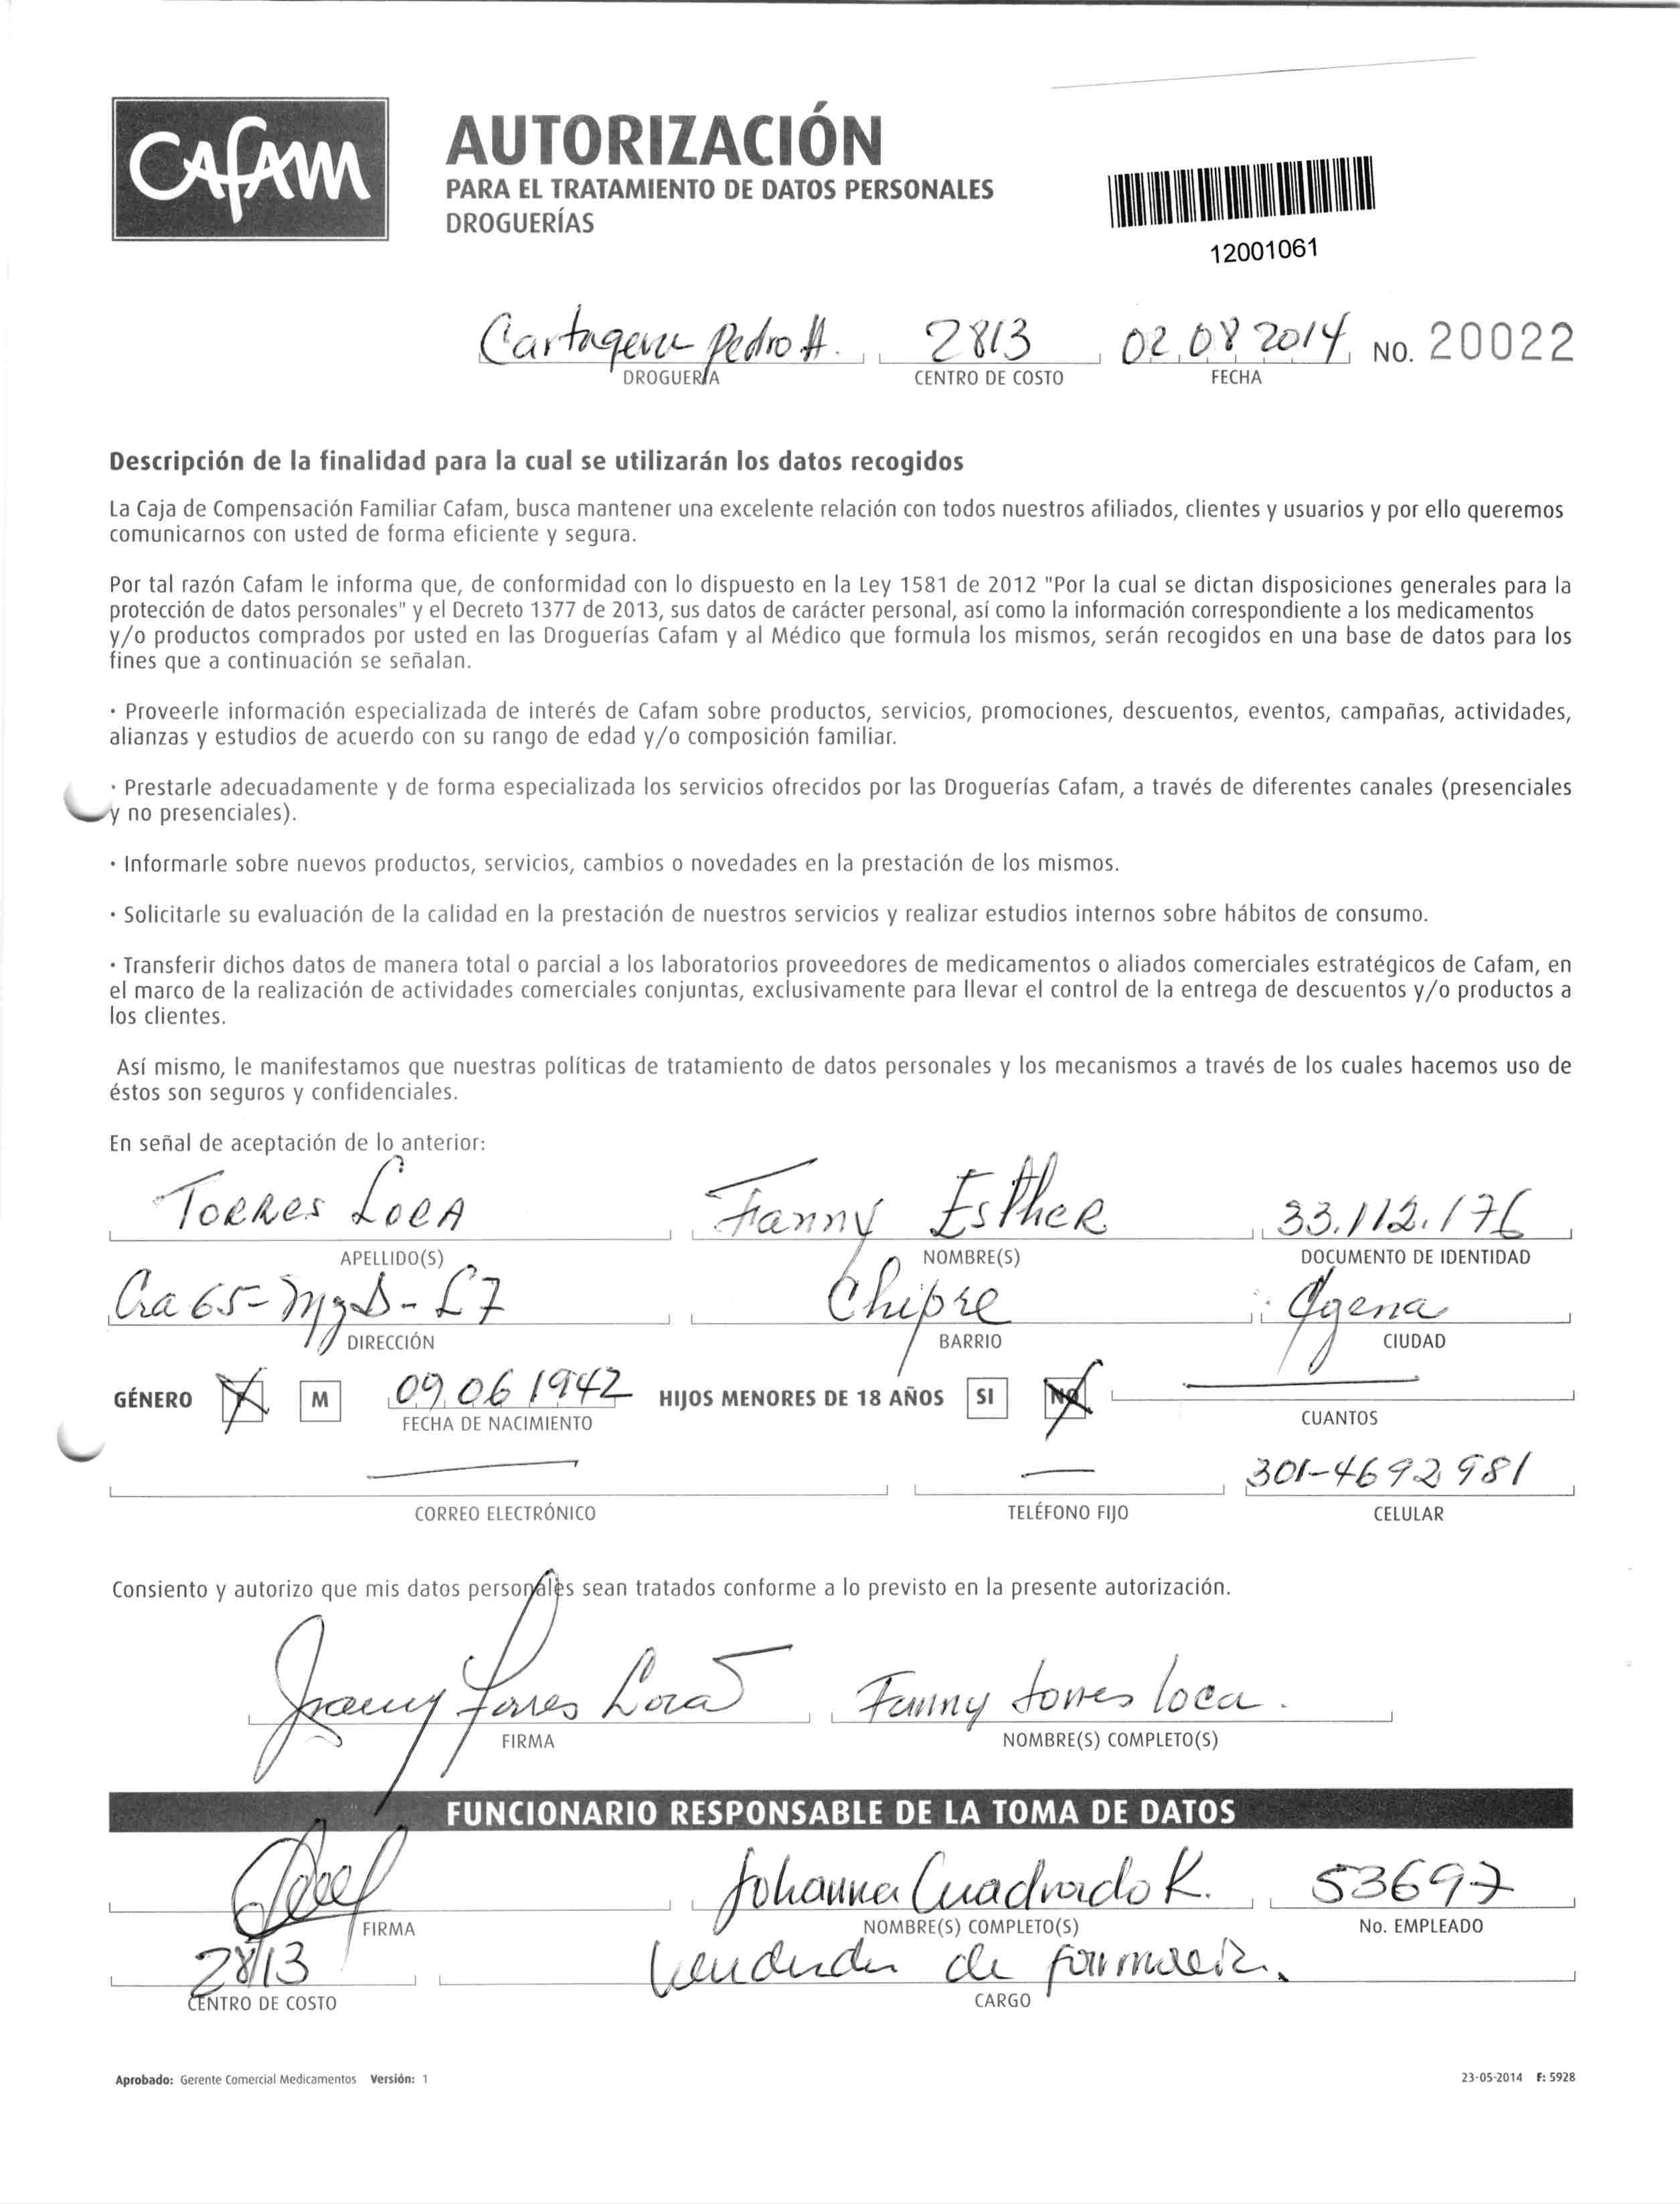 CAFAM
AUTORIZACIÓN
PARA EL TRATAMIENTO DE DATOS PERSONALES
DROGUERÍAS
12001061
Cartagena Pedro H. 2813 02 08 2014 NO. 20022
DROGUERÍA CENTRO DE COSTO FECHA
Descripción de la finalidad para la cual se utilizarán los datos recogidos
La Caja de Compensación Familiar Cafam, busca mantener una excelente relación con todos nuestros afiliados, clientes y usuarios y por ello queremos
comunicarnos con usted de forma eficiente y segura.
Por tal razón Cafam le informa que, de conformidad con lo dispuesto en la Ley 1581 de 2012 "Por la cual se dictan disposiciones generales para la
protección de datos personales" y el Decreto 1377 de 2013, sus datos de carácter personal, así como la información correspondiente a los medicamentos
y/o productos comprados por usted en las Droguerías Cafam y al Médico que formula los mismos, serán recogidos en una base de datos para los
fines que a continuación se señalan.
· Proveerle información especializada de interés de Cafam sobre productos, servicios, promociones, descuentos, eventos, campañas, actividades,
alianzas y estudios de acuerdo con su rango de edad y/o composición familiar.
· Prestarle adecuadamente y de forma especializada los servicios ofrecidos por las Droguerías Cafam, a través de diferentes canales (presenciales
y no presenciales).
· Informarle sobre nuevos productos, servicios, cambios o novedades en la prestación de los mismos.
· Solicitarle su evaluación de la calidad en la prestación de nuestros servicios y realizar estudios internos sobre hábitos de consumo.
· Transferir dichos datos de manera total o parcial a los laboratorios proveedores de medicamentos o aliados comerciales estratégicos de Cafam, en
el marco de la realización de actividades comerciales conjuntas, exclusivamente para llevar el control de la entrega de descuentos y/o productos a
los clientes.
Así mismo, le manifestamos que nuestras políticas de tratamiento de datos personales y los mecanismos a través de los cuales hacemos uso de
éstos son seguros y confidenciales.
En señal de aceptación de lo anterior:
Torres Loca Fanny Esther 33.112.176
APELLIDO(S) NOMBRE(S) DOCUMENTO DE IDENTIDAD
Cra 65- MzD- L7 Chipre C/gena
DIRECCIÓN BARRIO CIUDAD
GÉNERO M 09 06 1942 HIJOS MENORES DE 18 AÑOS SI NO
FECHA DE NACIMIENTO CUANTOS
301-4692981
CORREO ELECTRÓNICO TELÉFONO FIJO CELULAR
Consiento y autorizo que mis datos personales sean tratados conforme a lo previsto en la presente autorización.
Fanny Torres Loca Fanny torres loca.
FIRMA NOMBRE(S) COMPLETO(S)
FUNCIONARIO RESPONSABLE DE LA TOMA DE DATOS
Johanna Cuadrado K. 53697
FIRMA NOMBRE(S) COMPLETO(S) No. EMPLEADO
2813 Vendedor de farmacia.
CENTRO DE COSTO CARGO
Aprobado: Gerente Comercial Medicamentos Versión: 1 23-05-2014 F: 5928